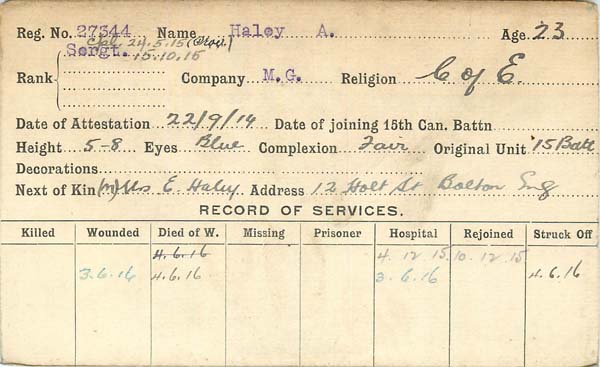 Reg. No. 27344 Name Haley A. Age 23
Cpl 24.5.15 (Prov.)
Sergt. 15.10.15
Rank Company M.G. Religion C of E.
Date of Attestation 22/9/14 Date of joining 15th Can. Battn
Height 5-8 Eyes Blue Complexion Fair Original Unit 15 Batt
Decorations
Next of Kin (m) Mrs E. Haley. Address 12 Holt St Bolton Eng
RECORD OF SERVICES.
Killed Wounded Died of W. Missing Prisoner Hospital Rejoined Struck Off
4.6.16 4.12.15 10.12.15
3.6.16 4.6.16 3.6.16 4.6.16